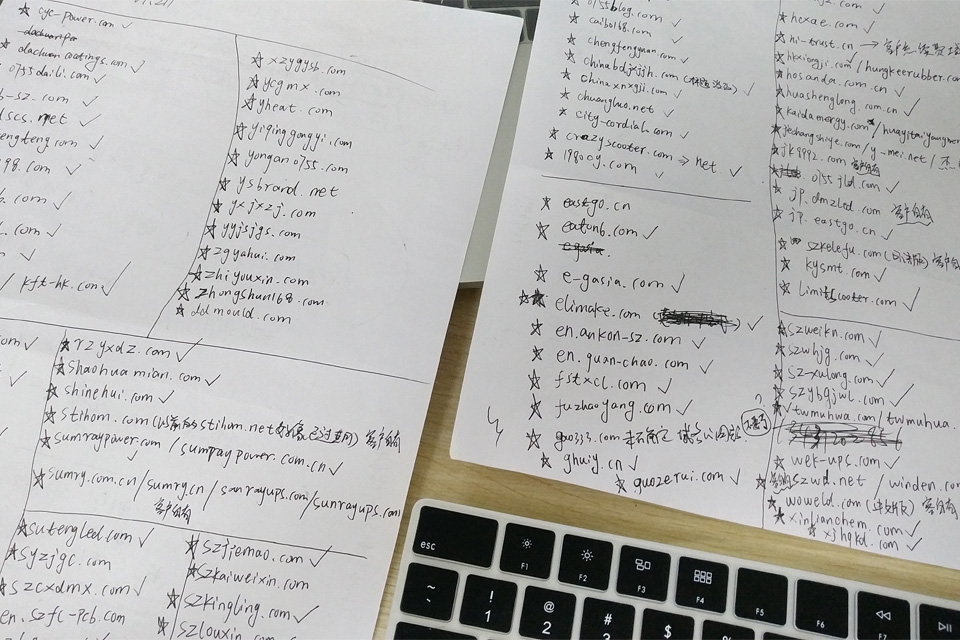 cyc-power.com
dachuancoatings.com
0755daili.com
b-sz.com
dscs.net
engteng.com
198.com
kft-hk.com
xzygysb.com
ycgmx.com
yheat.com
yiqinggongyi.com
yongan0755.com
ysbrand.net
yxjxzj.com
yyjsjgs.com
zgyahui.com
zhiyouxin.com
zhongshun168.com
ddmould.com
rzyxdz.com
shaohuamian.com
shinehui.com
stihom.com (以前的stihom.net 已过查询) 客户自有
sumraypower.com / sumpaypower.com.cn
sumry.com.cn/sumry.cn / sanrayups.com/sunrayups.com
客户自有
sutengled.com
syzjgc.com
szcxdmx.com
en.szfc-pcb.com
szjiemao.com
szkaiweixin.com
szkingling.com
szlouxin.com
0755blog.com
caibo168.com
chengfengyuan.com
chinabdjxjjh.com
chinaxnxgjj.com
chuangluo.net
city-cordiah.com
crazyscooter.com → net
1980cy.com
eastgo.cn
eaton6.com
e-gasia.com
elimake.com
en.ankon-sz.com
en.guan-chao.com
fstxcl.com
fuzhaoyang.com
gao333.com
ghuiy.cn
guozerui.com
hexae.com
hi-trust.cn →
hkxiongji.com / hungkeerubber.com
hosanda.com.cn
huashenglong.com.cn
kaidamorgy.com / huayitaiyangneng
jiechangshiye.com / y-mei.net /
jk8992.com 客户自有
0755jld.com
jp.dmzled.com 客户自有
jp.eastgo.cn
szkelefu.com 客户自有
kysmt.com
limitscooter.com
szweikn.com
szwhjg.com
sz-xulong.com
szybqjwl.com
twmuhwa.com / twmuhua.
wek-ups.com
szwd.net / winden.com
woweld.com 客户自有
xinlianchem.com
xjhqkd.com
esc
F1
F2
F3
F4
F5
F6
~
!
1
@
2
#
$
%